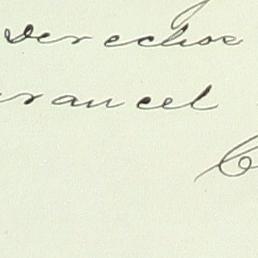 Derechos
arancel
C